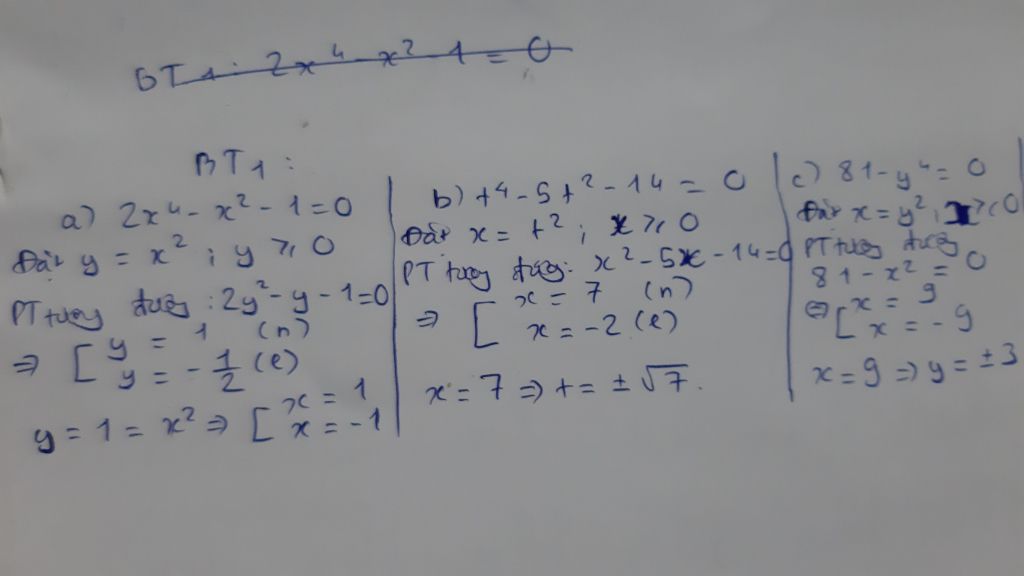 BT1: 2x⁴ - x² - 1 = 0
BT1:
a) 2x⁴ - x² - 1 = 0
Đặt y = x² ; y ≥ 0
PT tương đương : 2y² - y - 1 = 0
⇒ [ y = 1 (n)
y = -1/2 (l)
y = 1 = x² ⇒ [ x = 1
x = -1
b) t⁴ - 5t² - 14 = 0
Đặt x = t² ; x ≥ 0
PT tương đương: x² - 5x - 14 = 0
⇒ [ x = 7 (n)
x = -2 (l)
x = 7 ⇒ t = ±√7.
c) 81 - y⁴ = 0
Đặt x = y² ; x ≥ 0
PT tương đương
81 - x² = 0
⇔ [ x = 9
x = -9
x = 9 ⇒ y = ±3